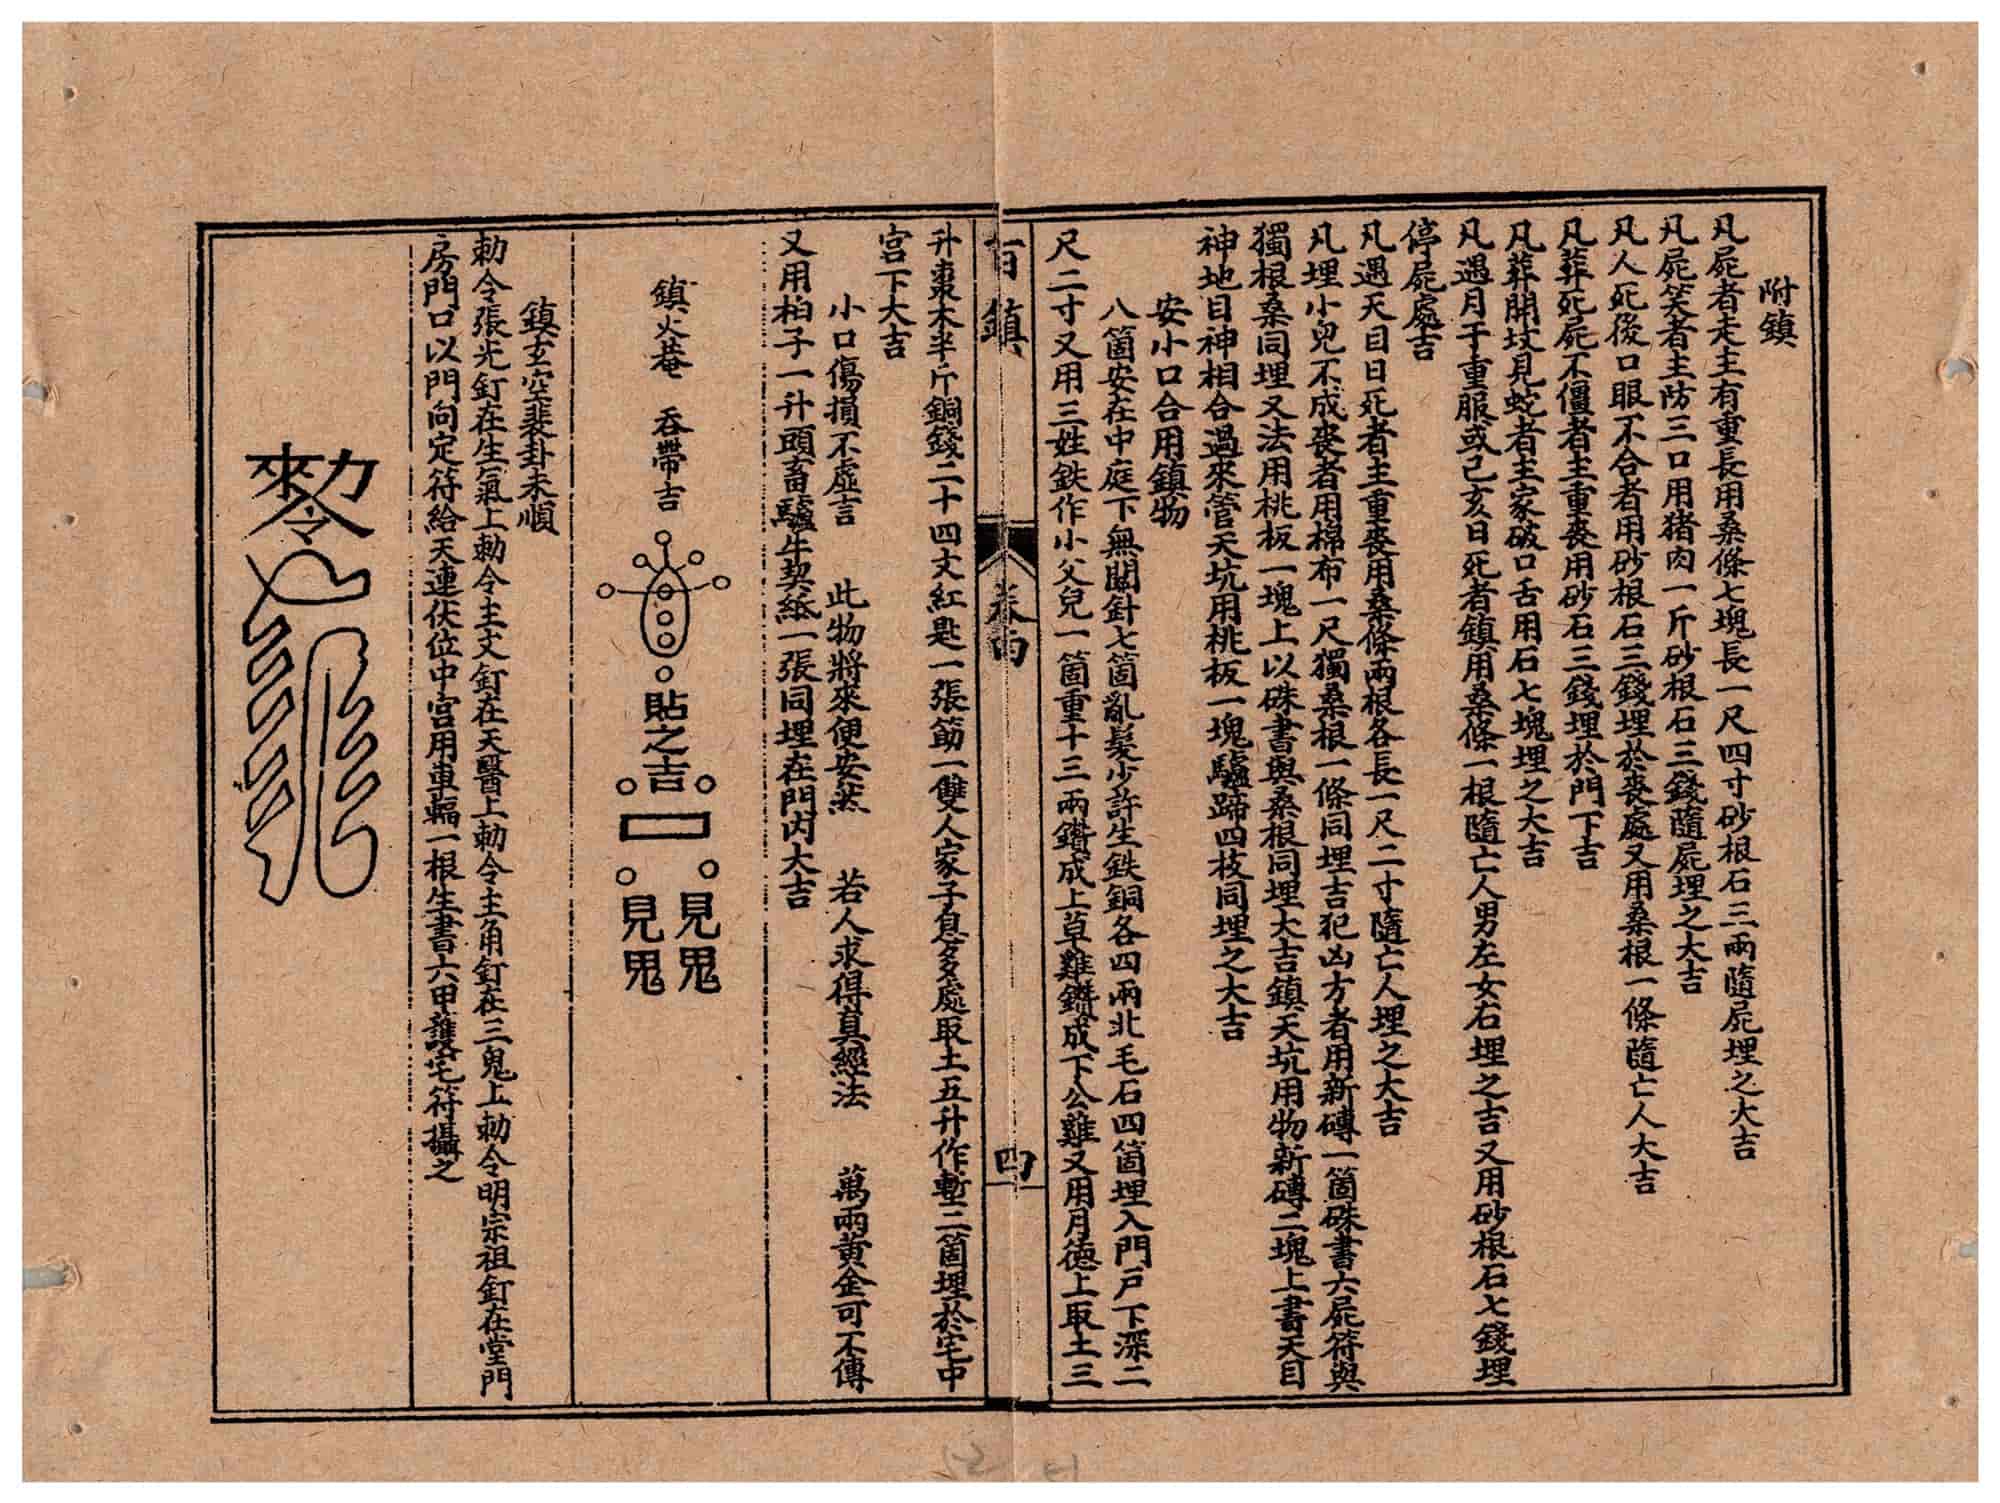 附鎮
凡屍者走主有重長用桑條七塊長一尺四寸砂根石三兩隨屍埋之大吉
凡屍笑者主防三口用猪肉一斤砂根石三錢隨屍埋之大吉
凡人死後口眼不合者用砂根石三錢埋於丧處又用桑根一條隨亡人大吉
凡葬死屍不僵者主重丧用砂石三錢埋於門下吉
凡葬開坟見蛇者主家破口舌用石七塊埋之大吉
凡遇月于重服或己亥日死者鎮用桑條一根隨亡人男左女右埋之吉又用砂根石七錢埋
停屍處吉
凡遇天目日死者主重喪用桑條兩根各長一尺二寸隨亡人埋之大吉
凡埋小兒不成丧者用棉布一尺獨桑根一條同埋吉犯凶方者用新磚一箇硃書六屍符與
獨根桑同埋又法用桃板一塊上以硃書與桑根同埋大吉鎮天坑用物新磚二塊上書天目
神地目神相合過來管天坑用桃板一塊驢蹄四枝同埋之大吉
安小口合用鎮物
八箇安在中庭下無關針七箇亂髮少許生鉄銅各四兩北毛石四箇埋入門戶下深二
尺二寸又用三姓鉄作小父兒一箇重十三兩鑽成上草雞鑽成下公雞又用月德上取土三
百鎮
卷丙
四
升棗木半斤銅錢二十四文紅匙一張筯一雙人家子息多處取土五升作塹二箇埋於宅中
宫下大吉
小口傷損不虛言 此物將來便安然 若人求得真經法 萬兩黄金可不傳
又用柏子一升頭畜驢牛契紙一張同埋在門内大吉
鎮火菴 吞帶吉
貼之吉
見鬼
見鬼
鎮玄空裴卦未順
勅令張光釘在生氣上勅令主文釘在天醫上勅令主角釘在三鬼上勅令明宗祖釘在堂門
房門口以門向定符給天連伏位中宫用車輻一根生書六甲護宅符攝之
勅令